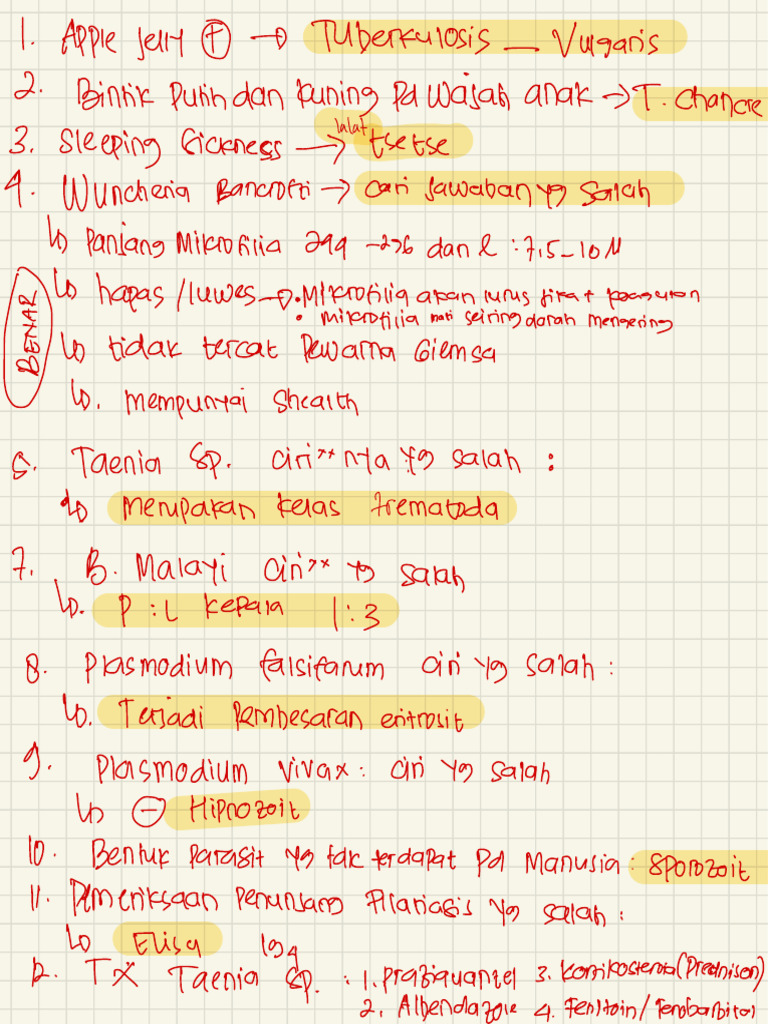 1. Apple jelly (+) → Tuberkulosis _ Vulgaris
2. Bintik Putih dan kuning pd wajah anak → T. Chancre
3. Sleeping Sickness → lalat tsetse
4. Wuncheria Bancrofti → cari jawaban yg salah
↳ Panjang Mikrofilia 244 - 276 dan l : 7,5 - 10 µ
BENAR
↳ hapas / luwes → • Mikrofilia akan lurus jika +
• mikrofilia mati seiring darah mengering
↳ tidak tercat Pewarna Giemsa
↳. mempunyai Shealth
5. Taenia Sp. ciri"nya yg salah :
↳ merupakan kelas trematoda
7. B. Malayi ciri" yg salah
↳. P : L kepala 1 : 3
8. Plasmodium falsifarum ciri yg salah :
↳. Terjadi Pembesaran eritrosit
9. Plasmodium vivax : ciri yg salah
↳ (-) Hipnozoit
10. Bentuk parasit yg tdk terdapat pd Manusia : Sporozoit
11. Pemeriksaan Penunjang Filariasis yg salah :
↳ Elisa
12. TX Taenia Sp. : 1. praziquantel 3. Kortikosteroid (Prednison)
2. Albendazole 4. Fenitoin / Fenobarbital